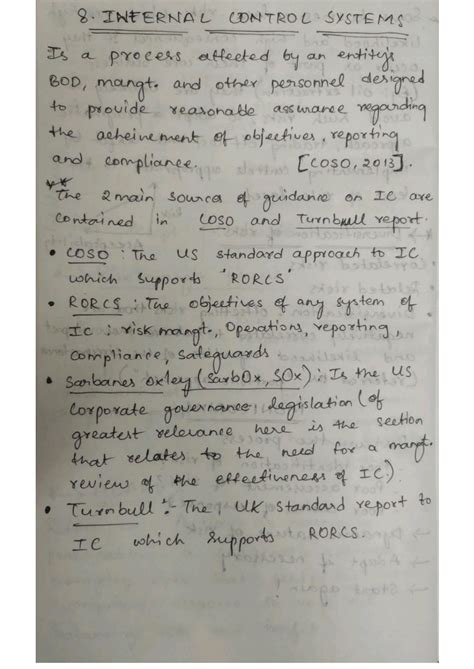 8. INTERNAL CONTROL SYSTEMS
Is a process affected by an entity's
BOD, mangt. and other personnel designed
to provide reasonable assurance regarding
the acheivement of objectives, reporting
and compliance. [COSO, 2013].
** The 2 main source of guidance on IC are
contained in COSO and Turnbull report.
• COSO : The US standard approach to IC
which supports 'RORCS'
• RORCS : The objectives of any system of
IC : risk mangt., Operations, reporting,
compliance, safeguards.
• Sarbanes Oxley (SarbOx, SOx) : Is the US
Corporate governance legislation (of
greatest relevance here is the section
that relates to the need for a mangt.
review of the effectiveness of IC.)
• Turnbull :- The UK standard report to
IC which supports RORCS.